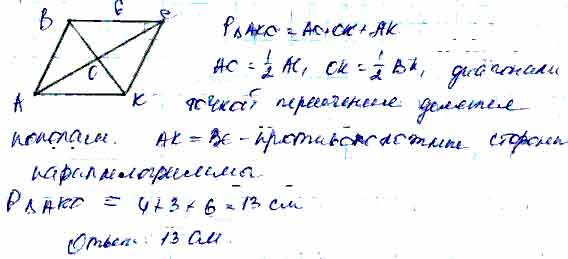 B 6 C
P△AKO = AO + OK + AK
O
AO = 1/2 AC, OK = 1/2 BK, диагонали
A K
точкой пересечения делятся
пополам. AK = BC - противоположные стороны
параллелограмма.
P△AKO = 4+3+6=13 см
Ответ: 13 см.